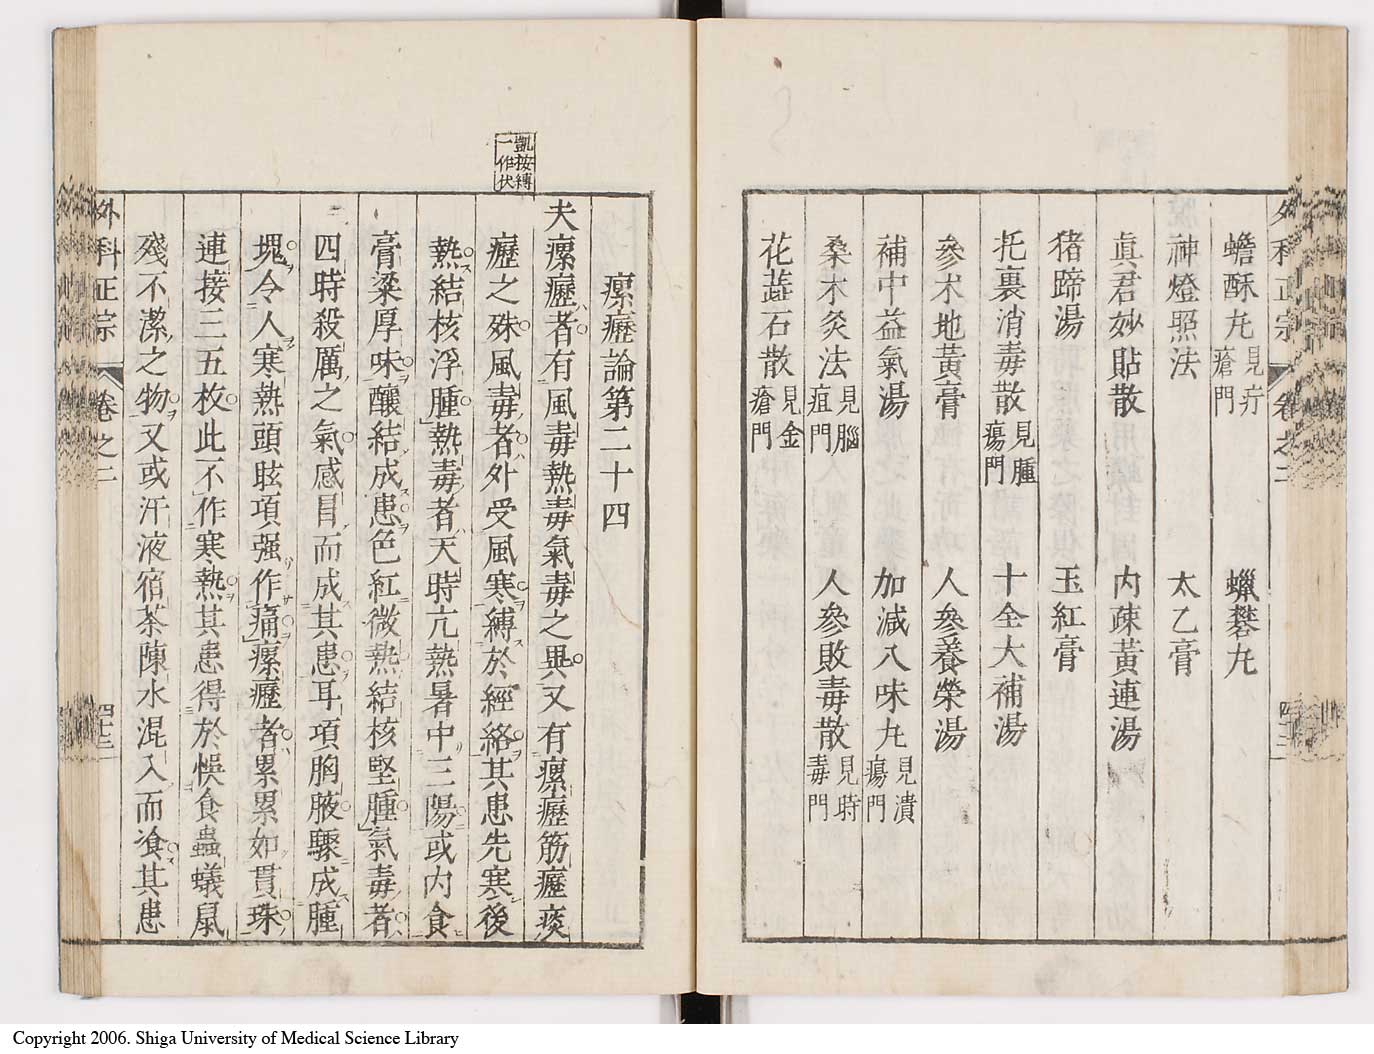 外科正宗 卷之二
蟾酥丸見疔瘡門 蠟礬丸
神燈照法 太乙膏
眞君妙貼散 内疎黃連湯
猪蹄湯 玉紅膏
托裏消毒散見腫瘍門 十全大補湯
參朮地黃膏 人參養榮湯
補中益氣湯 加減八味丸見潰瘍門
桑木灸法見腦疽門 人參敗毒散見時毒門
花蕋石散見金瘡門
瘰癧論第二十四
夫瘰癧者有風毒熱毒氣毒之異又有瘰癧筋癧痰
癧之殊風毒者外受風寒縛於經絡其患先寒後
凱按縛一作伏
熱結核浮腫熱毒者天時亢熱暑中三陽或内食
膏粱厚味釀結成患色紅微熱結核堅腫氣毒者
四時殺厲之氣感冒而成其患耳項胸腋驟成腫
塊令人寒熱頭眩項强作痛瘰癧者累累如貫珠
連接三五枚此不作寒熱其患得於悞食蟲蟻鼠
殘不潔之物又或汗液宿茶陳水混入而飡其患
外科正宗 卷之二 四十三
Copyright 2006. Shiga University of Medical Science Library